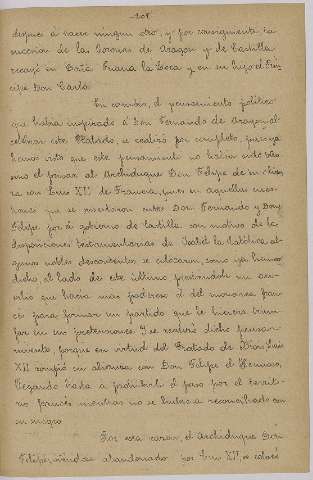 -208-
después á nacer ningun otro, y por consiguiente la
sucesion de las Coronas de Aragon y de Castilla
recayó en Doña Juana la Loca y en su hijo el Prín
cipe Don Carlos.
En cambio, el pensamiento político
que había inspirado á Don Fernando de Aragon, al
celebrar este Tratado, se realizó por completo, pues ya
hemos visto que este pensamiento no había sido más
que el privar al Archiduque Don Felipe de su alian
za con Luis XII de Francia, pues en aquellas cues
tiones que se suscitaron entre Don Fernando y Don
Felipe por el gobierno de Castilla, con motivo de las
disposiciones testamentarias de Isabel la Católica, al-
gunos nobles descontentos se colocaron, como ya hemos
dicho, al lado de este último prestándole un au-
xilio que hacía mas poderoso el del monarca fran
cés para formar un partido que le hiciera triun
far en sus pretensiones. Y se realizó dicho pensa-
miento, porque en virtud del Tratado de Blois Luis
XII rompió su alianza con Don Felipe el Hermoso,
llegando hasta á prohibirle el paso por el territo-
rio francés mientras no se hubiera reconciliado con
su suegro.
Por esta razon, el Archiduque Don
Felipe, viéndose abandonado por Luis XII, se colocó